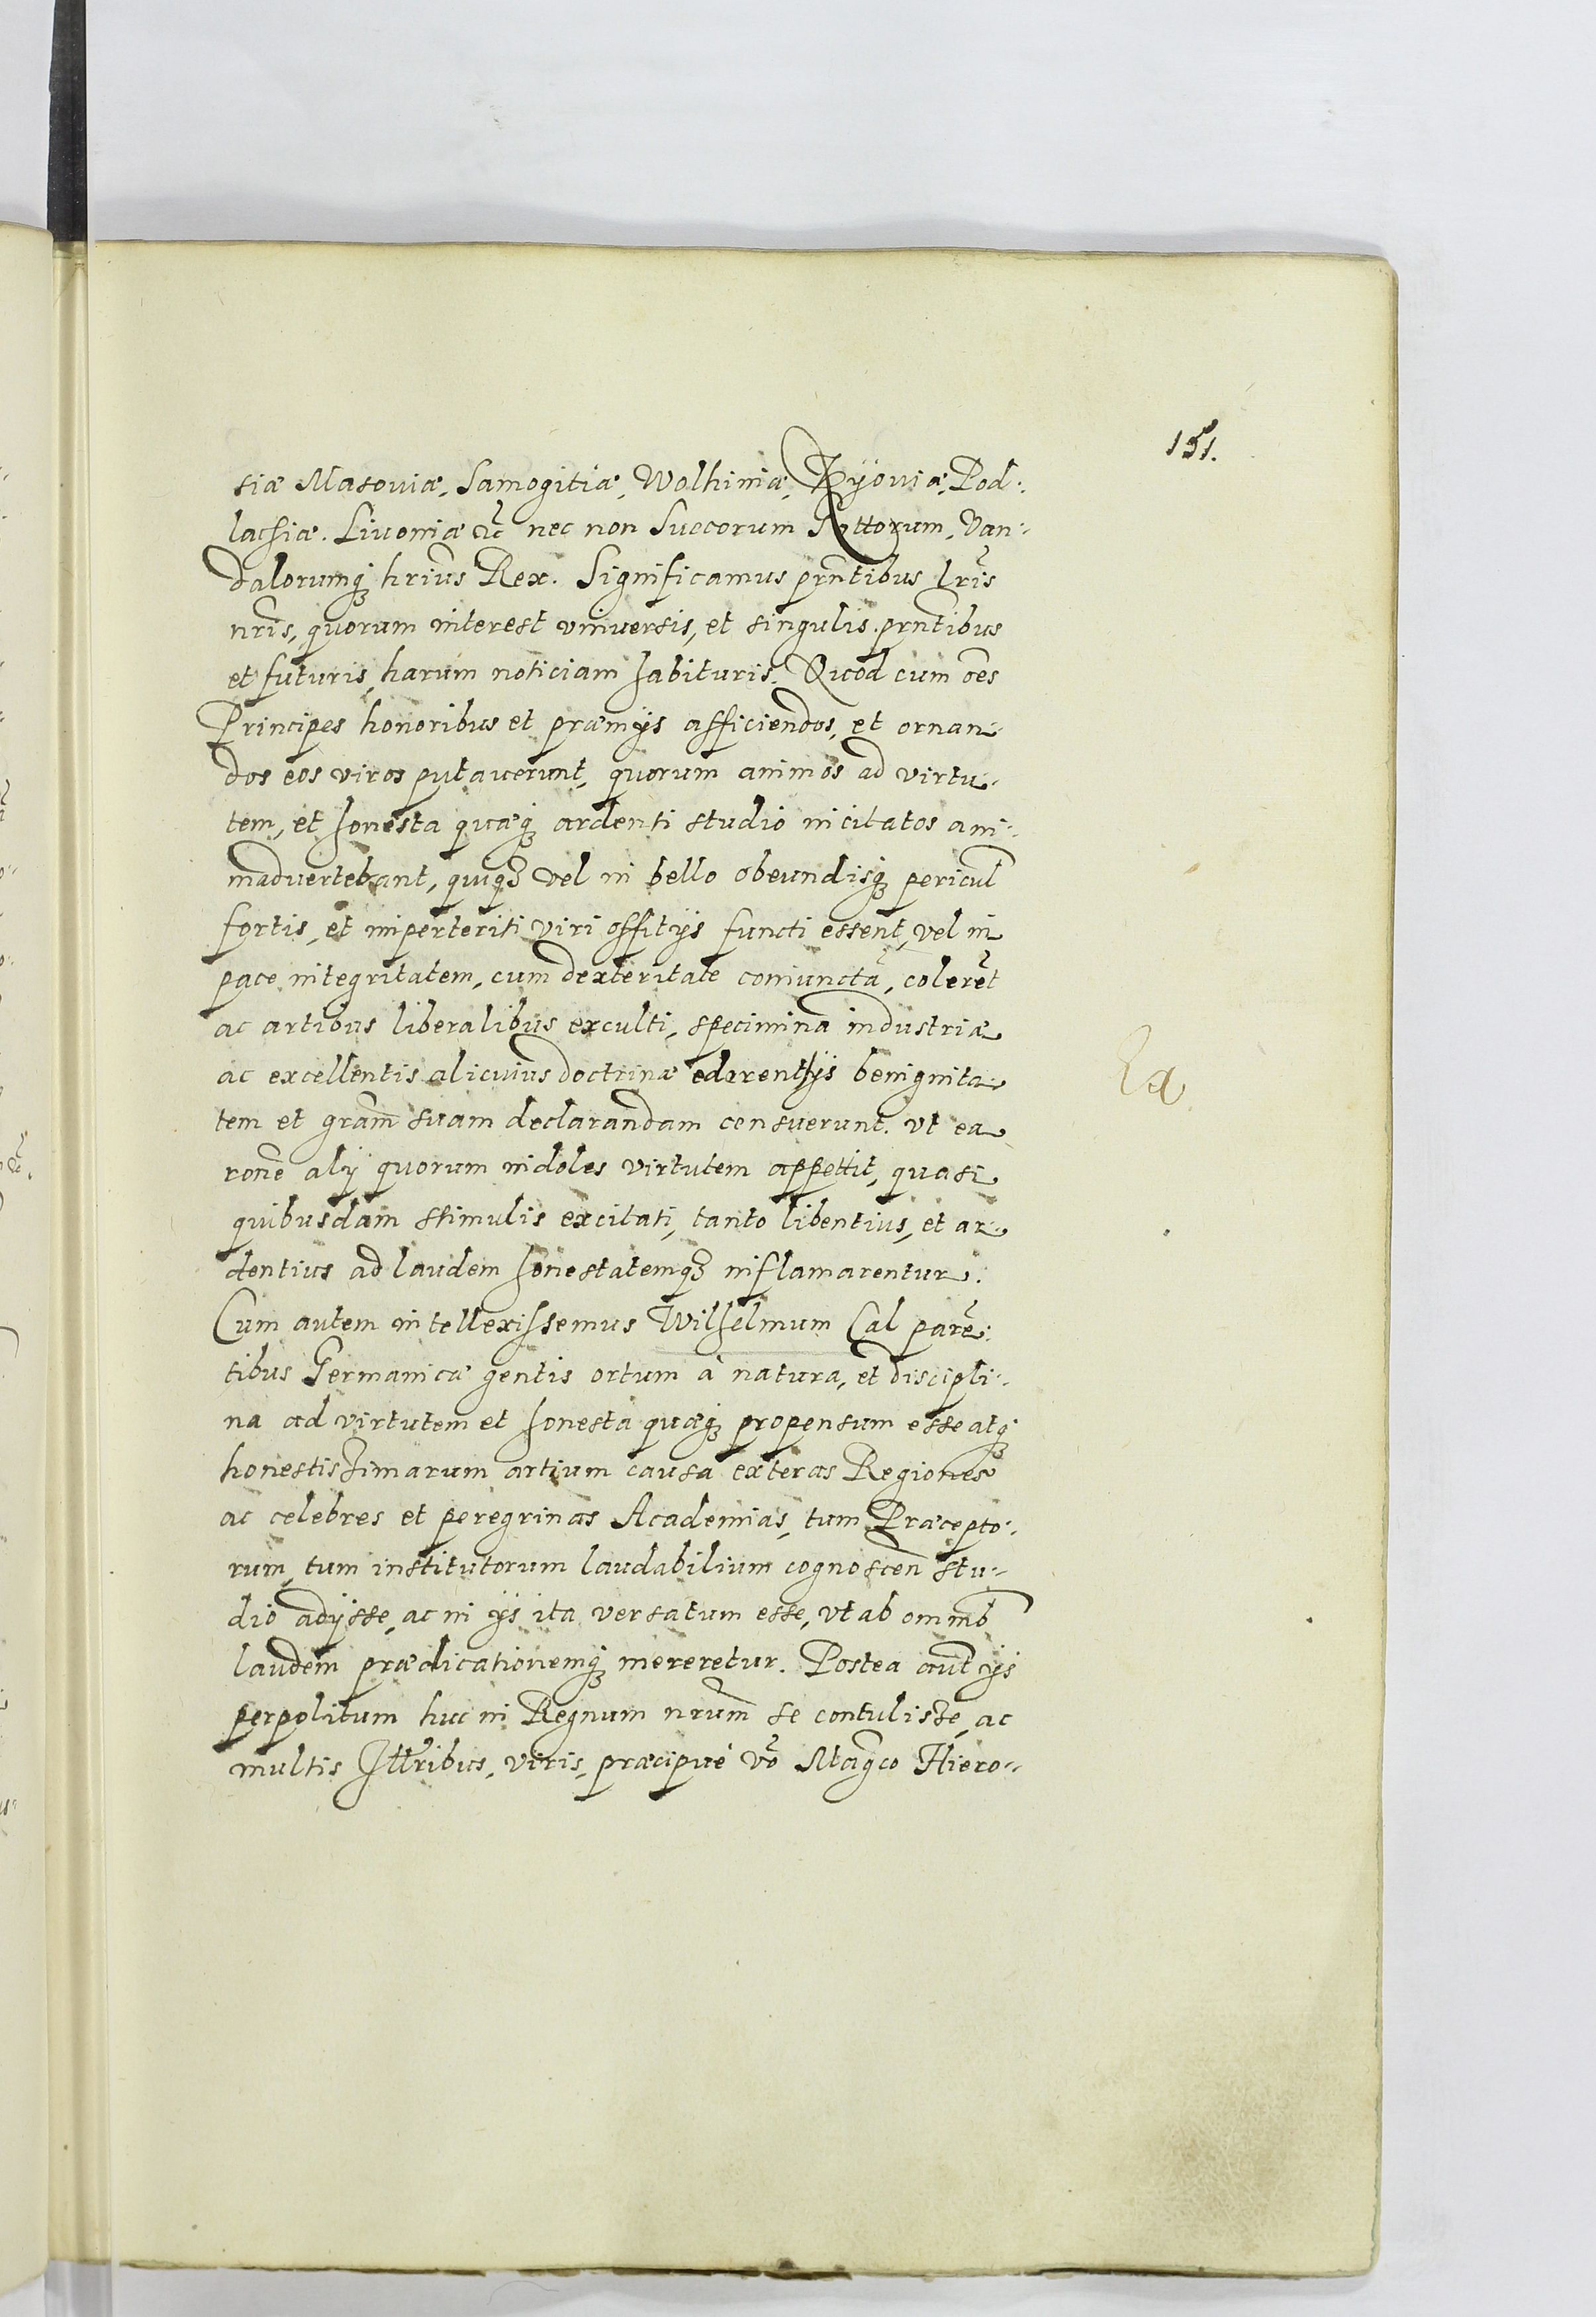 151.
siæ Masouiæ, Samogitiæ, Wolhiniæ, Kyouiæ, Pod:
lachiæ. Liuoniæ ꝛc̃ nec non Suecorum Gottorum, Van:
dalorumq₃ hrius̃ Rex. Significamus prñtibus Lrĩs
nrĩs, quorum interest vniuersis, et singulis. prñtibus
et futuris, harum noticiam habituris. Quod cum oẽs
Principes honoribus et præmijs afficiendos, et ornan:
dos eos viros putauerunt, quorum animos ad virtu:
tem, et honesta quæq₃ ardenti studio incitatos ani:
maduertebant, quiq₃ vel in bello obeundisq₃ pericul
fortis, et imperteriti viri offitijs functi essent, vel in
pace integritatem, cum dexteritate coniunctã, colerẽt
ac artibus liberalibus exculti, specimina industriæ
ac excellentis alicuius doctrinæ ederent, ijs benignita:
tem et gram̃ suam declarandam censuerunt. vt ea
ronẽ alij quorum indoles virtutem appettit, quasi
quibusdam stimulis excitati, tanto libentius, et ar:
dentius ad laudem honestatemq₃ inflamarentur.
Cum autem intellexissemus Wilhelmum Cal parẽ:
tibus Germanicæ gentis ortum à natura, et discipli:
na ad virtutem et honesta quæq₃ propensum esse atq₃
honestissimarum artium causa exteras Regiones
ac celebres et peregrinas Academias, tum Præcepto:
rum, tum institutorum laudabilium cognoscen̄ stu:
dio adijsse, ac in ijs ita versatum esse, vt ab omnib
laudem prædicationemq₃ mereretur. Postea aut̃ ijs
perpolitum huc in Regnum nrum̃ se contulisse, ac
multis Illr̃ibus, viris, præcipuè võ Magc̃o Hiero: